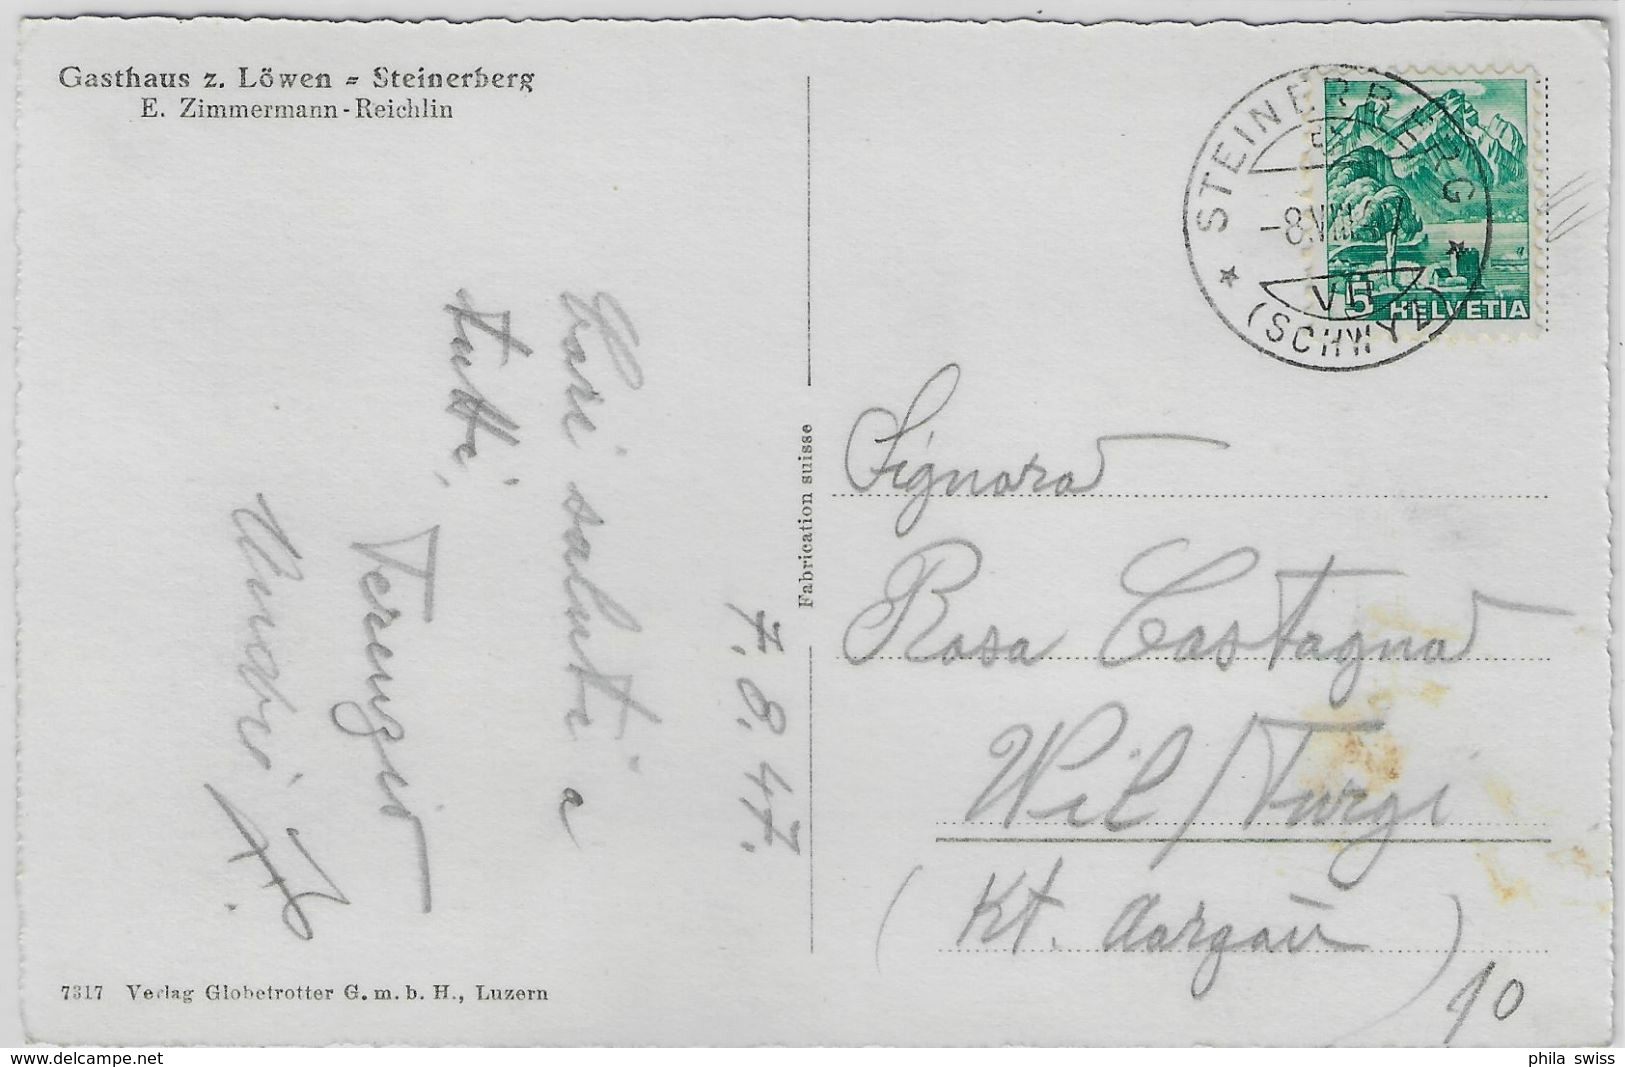 Gasthaus z. Löwen = Steinerberg
E. Zimmermann-Reichlin
7.8.47.
Cari saluti a
tutti,
Fabrication suisse
STEINERBERG
-8.VIII.47
VII
(SCHWYZ)
5 HELVETIA
Signora
Rosa Castagna
Wil/Turgi
(Kt. Aargau)
10
7317 Verlag Globetrotter G.m.b.H., Luzern
www.delcampe.net
phila swiss